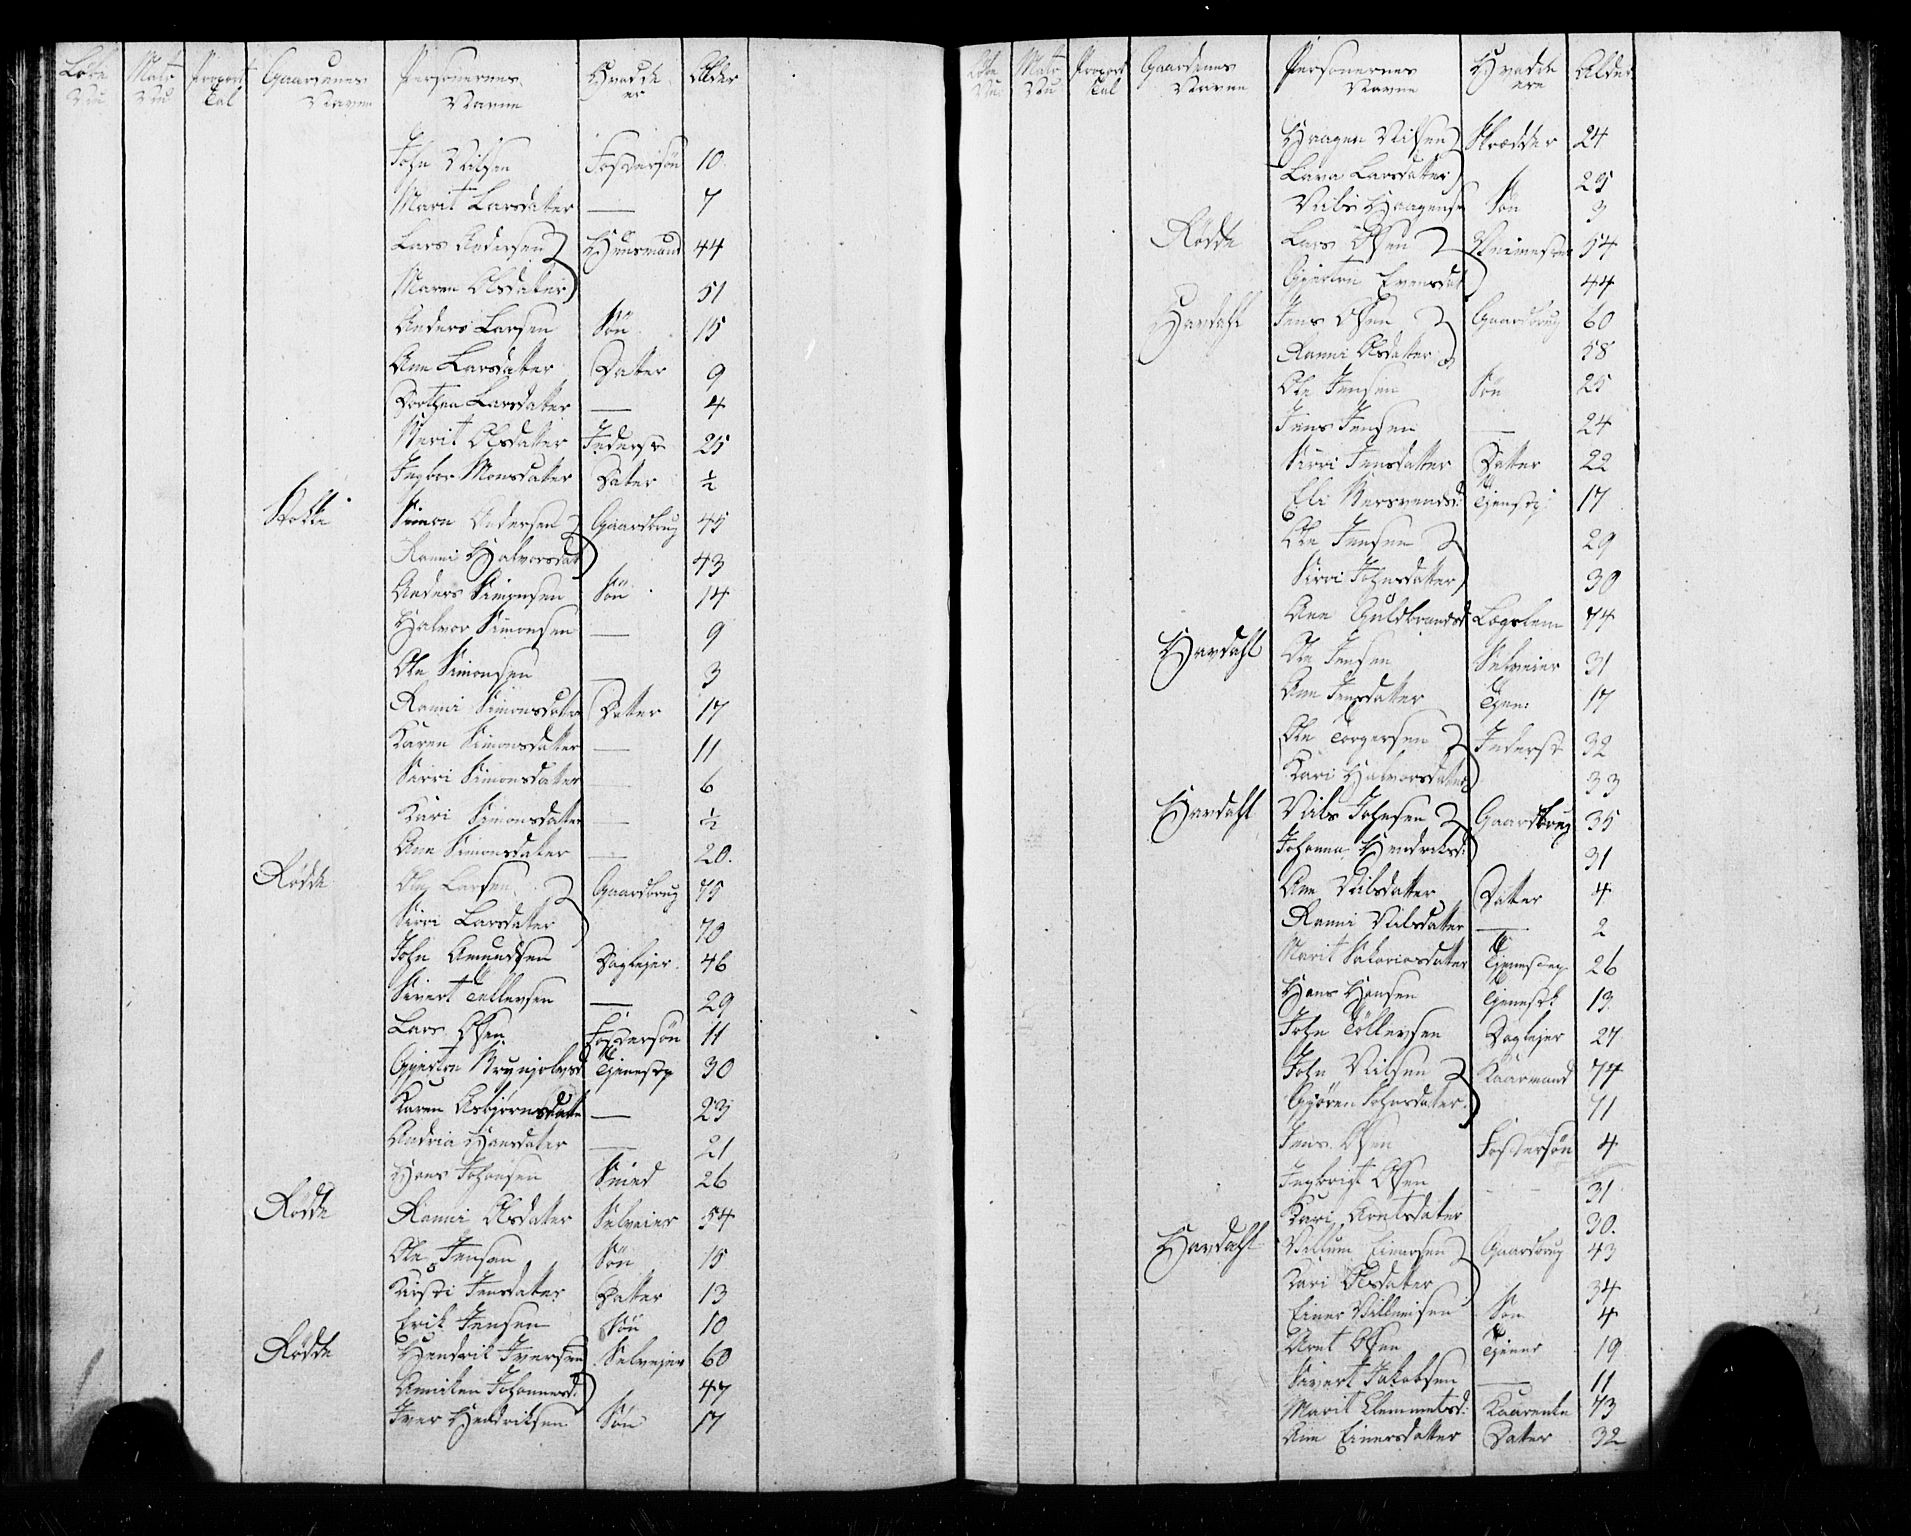 Løbe Nu	Matr Nu	Proport Tal	Gaardenes Navne	Personernes Navne	Hvad de er	Alder
John Nilsen	Fostersøn	10
Marit Larsdatter	—	7
Lars Andersen	Huusmand	44
Maren Olsdatter		51
Anders Larsen	Søn	15
Ane Larsdatter	Datter	9
Dorthea Larsdatter	—	4
Berit Olsdatter	Inderst	25
Ingbor Monsdatter	Dater	½
Stokke	Simon Andersen	Gaardbrug	45
Ranni Halvorsdat		43
Anders Simonsen	Søn	14
Halvor Simonsen	—	9
Ole Simonsen	—	3
Ranni Simonsdatter	Datter	17
Karen Simonsdatter	—	11
Sirri Simonsdatter	—	6
Kari Simonsdatter	—	½
Ane Simonsdater	—	20.
Rødde	Ole Larsen	Gaardbrug	75
Sirri Larsdatter		70
John Amundsen	Daglejer	46
Sivert Tellevsen	—	29
Lars Olsen	Fostersøn	11
Gjertru Brynjolvsd	Tjenestp	30
Karen Asbjørnsdatte	—	23
Andria Hansdater	—	21
Hans Johansen	Smed	26
Rødde	Ranni Olsdater	Selveier	54
Ole Jensen	Søn	15
Kirsti Jensdatter	Datter	13
Erik Jensen	Søn	10
Rødde	Hendrik Iversen	Selvejer	60
Anniken Johannesd:		47
Iver Hendriksen	Søn	17
Løbe Nu	Matr Nu	Proport Tal	Gaardenes Navne	Personernes Navne	Hvad de ere	Alder
Haagen Nilsen	Skrædder	24
Lava Larsdatter		25
Nils Haagens	Søn	3
Rødde	Lars Olsen		54
Gjertru Evensdat		44
Havdahl	Jens Olsen	Gaardbrug	60
Ranni Olsdatter		58
Ole Jensen	Søn	25
Jens Jensen	—	24
Sirri Jensdatter	Datter	22
Eli Bersvendsd:	Tjenestp:	17
Ole Jensen		29
Sirri Johnsdatter		30
Ane Guldbrandsd	Lægslem	74
Havdahl	Ole Jensen	Selveier	31
Ane Jensdatter	Tjen:	17
Ole Torgersen	Inderst	32
Kari Halvorsdatter		33
Havdahl	Nils Johnsen	Gaardbrug	35
Johanna Hendriksd:		31
Ane Nilsdatter	Datter	4
Ranni Nilsdatter	—	2
Marit Sakariasdatter	Tjenestep	26
Hans Hansen	Tjenestk	13
John Tøllevsen	Daglejer	27
John Nilsen	Kaarmand	77
Gjøren Johnsdater		71
Jens Olsen	Fostersøn	4
Ingbrigt Olsen	—	31
Kari Arntsdater		30.
Havdahl	Villum Einersen	Gaardbrug	43
Kari Olsdatter		34
Einer Villumsen	Søn	4
Arnt Olsen	Tjener	19
Sivert Jakobsen	—	11
Marit Clemmetsd:	Kaarenke	73
Ane Einersdatter	Dater	32